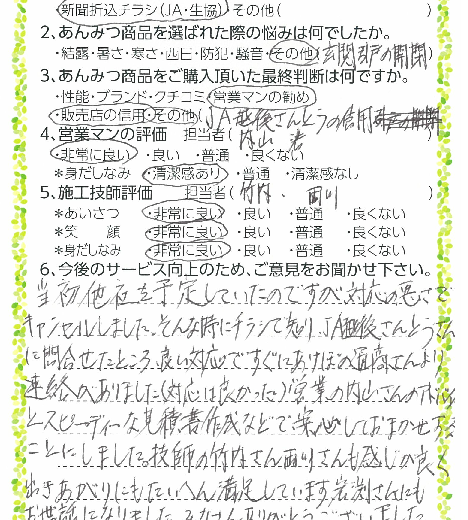 新聞折込チラシ(JA・生協) その他( )
2、あんみつ商品を選ばれた際の悩みは何でしたか。
・結露・暑さ・寒さ・西日・防犯・騒音・その他(玄関引戸の開閉)
3、あんみつ商品をご購入頂いた最終判断は何ですか。
・性能・ブランド・クチコミ・営業マンの勧め
・販売店の信用・その他(JA越後さんとうの信用
4、営業マンの評価 担当者( 内山 )
・非常に良い ・良い ・普通 ・良くない
*身だしなみ ・清潔感あり ・普通 ・清潔感なし
5、施工技師評価 担当者( 竹内、 )
*あいさつ ・非常に良い ・良い ・普通 ・良くない
*笑 顔 ・非常に良い ・良い ・普通 ・良くない
*身だしなみ ・非常に良い ・良い ・普通 ・良くない
6、今後のサービス向上のため、ご意見をお聞かせ下さい。
当初他店を予定していたのですが対応の悪さで
キャンセルしました。そんな時にチラシで知り JA越後さんとうさん
に問合せたところ良い対応ですぐにあけぼの さんより
連絡がありました(対応は良かった)営業の内山さんの
とスピーディーな見積書作成などで安心しておまかせする
ことにしました。技師の竹内さん さんも感じが良く
出きあがりにもたいへん満足しています。 さんにも
お世話になりました。みなさんありがとうございました